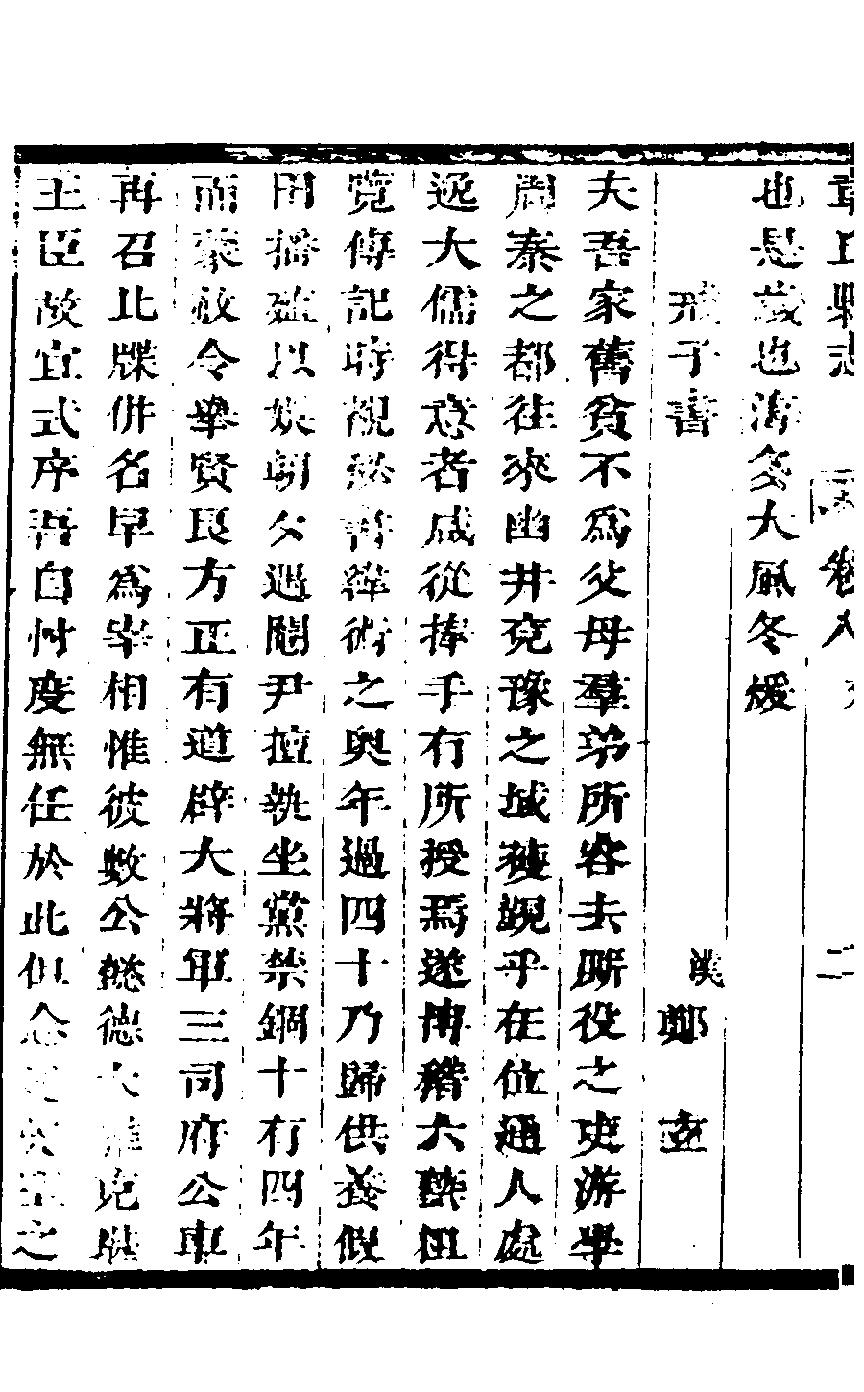 章丘縣志 卷八
也是歲也海多大風冬煖
戒子書 漢 鄭玄
夫吾家舊貧不為父母羣弟所容去厮役之吏游學
周秦之都往來幽并兗豫之域獲覲乎在位通人處
逸大儒得意者咸從捧手有所授焉遂博稽六藝粗
覽傳記時視祕書緯術之奥年過四十乃歸供養假
田播殖以娛朝夕遇閹尹擅執坐黨禁錮十有四年
而蒙赦令舉賢良方正有道辟大將軍三司府公車
再召比牒併名早為宰相惟彼數公懿德大雅克堪
王臣故宜式序吾自忖度無任於此但念